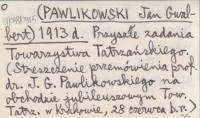 (PAWLIKOWSKI Jan Gwal-
bert) 1913 d. Przyszłe zadania
Towarzystwa Tatrzańskiego.
(Streszczenie przemówienia prof.
dr. J. G. Pawlikowskiego na
obchodzie jubileuszowym Tow.
Tatrz. w Krakowie, 28 czerwca b.r.)